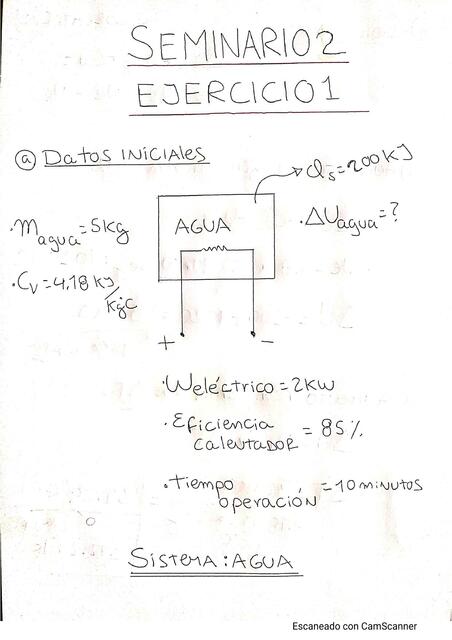 SEMINARIO 2
EJERCICIO 1
a DATOS INICIALES
Qs=200KJ
·magua=5kg
AGUA
·ΔUagua=?
·Cv=4.18 KJ/kgºC
+ -
·Weléctrico=2KW
·Eficiencia calentador = 85%
·Tiempo operación = 10 minutos
SISTEMA: AGUA
Escaneado con CamScanner